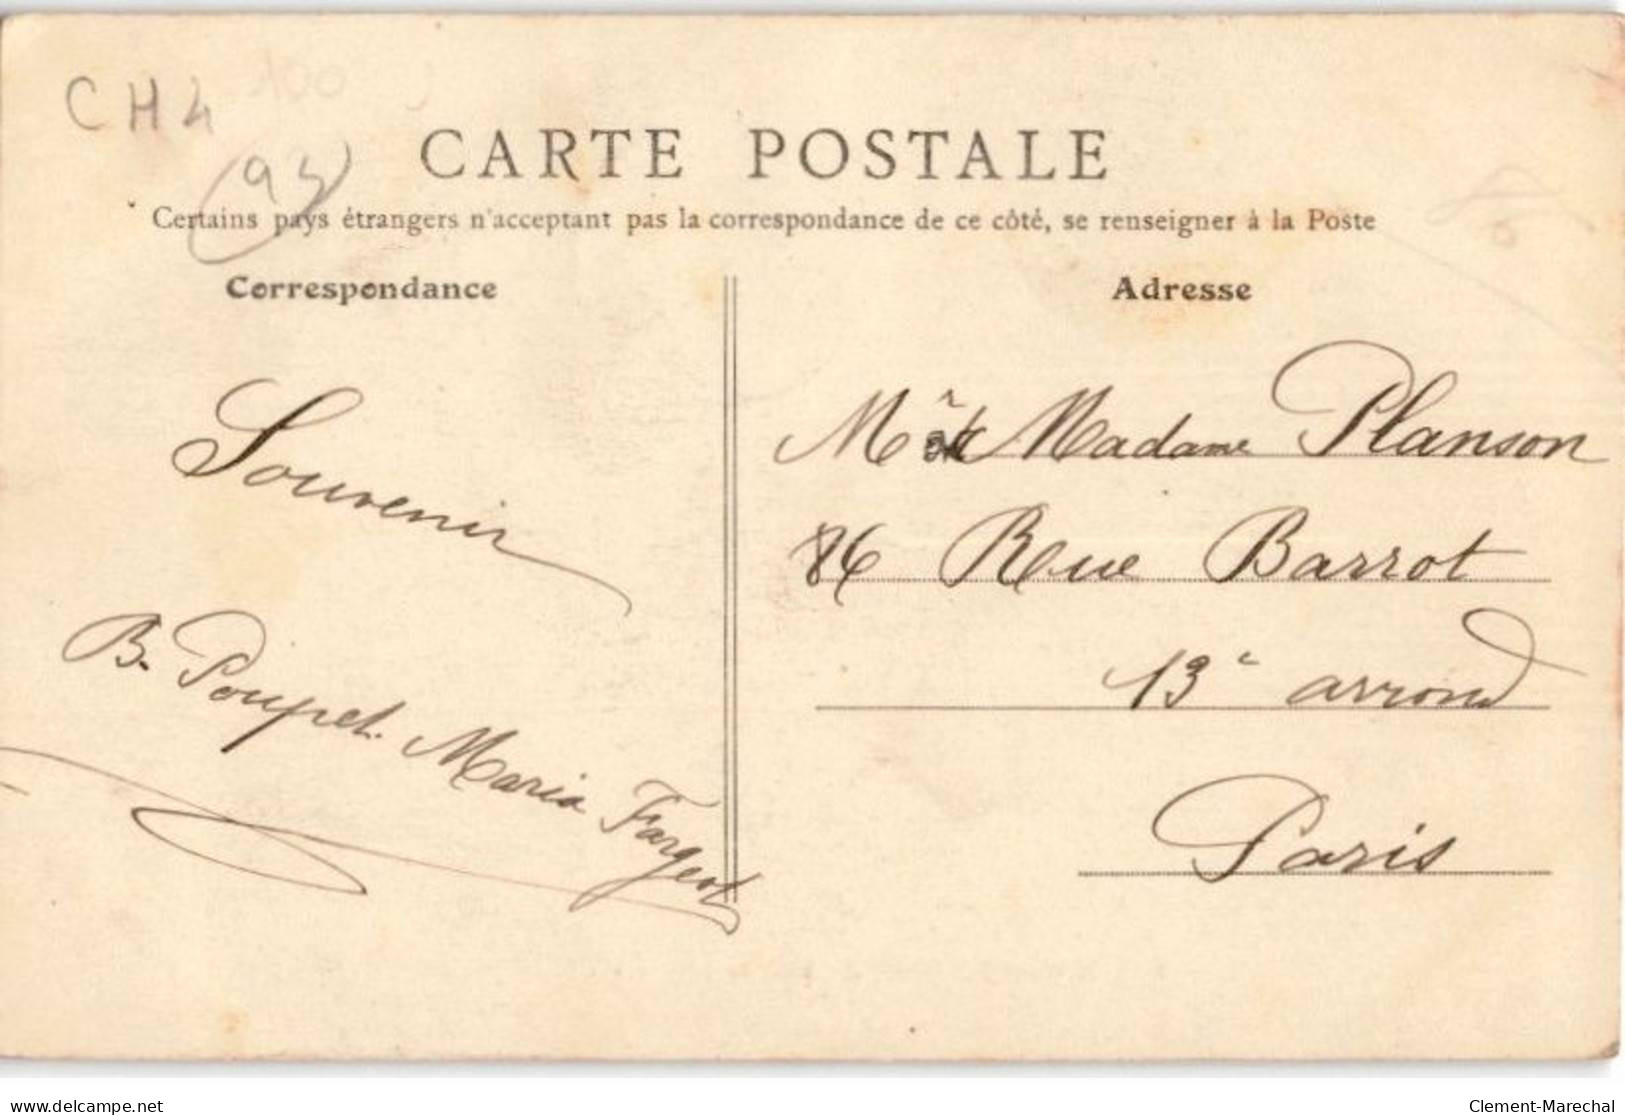 CH4
CARTE POSTALE
Certains pays étrangers n'acceptant pas la correspondance de ce côté, se renseigner à la Poste
Correspondance
Souvenir
B. Poupet. Maria Fargeot
Adresse
Mr et Madame Planson
86 Rue Barrot
13e arrond
Paris
delcampe.net
Clement-Marechal